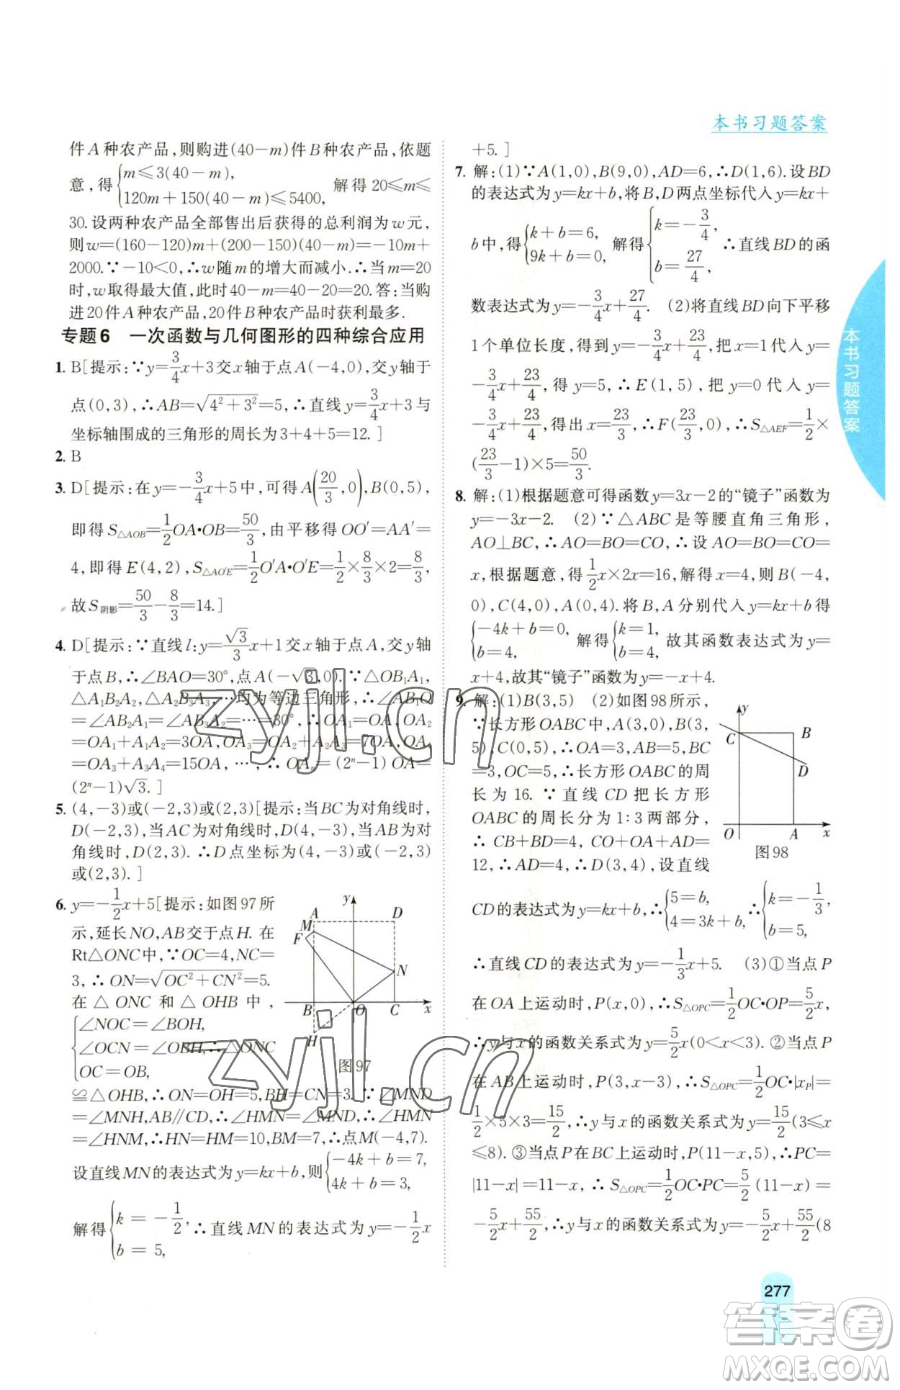 本书习题答案
件A种农产品,则购进(40-m)件B种农产品,依题
意,得{m≤3(40-m), 120m+150(40-m)≤5400, 解得20≤m≤
30.设两种农产品全部售出后获得的总利润为w元,
则w=(160-120)m+(200-150)(40-m)=-10m+
2000.∵-10<0,∴w随m的增大而减小.∴当m=20
时,w取得最大值,此时40-m=40-20=20.答:当购
进20件A种农产品,20件B种农产品时获利最多.
专题6 一次函数与几何图形的四种综合应用
1. B[提示:∵y=3/4x+3交x轴于点A(-4,0),交y轴于
点(0,3),∴AB=√(4²+3²)=5.∴直线y=3/4x+3与
坐标轴围成的三角形的周长为3+4+5=12.]
2. B
3. D[提示:在y=-3/4x+5中,可得A(20/3,0),B(0,5),
即得S△AOB=1/2OA·OB=50/3,由平移得OO′=AA′=
4,即得E(4,2),S△AO′E=1/2O′A·O′E=1/2×8/3×2=8/3,
故S阴影=50/3-8/3=14.]
4. D[提示:∵直线l:y=√3/3x+1交x轴于点A,交y轴
于点B,∴∠BAO=30°,点A(-√3,0).∵△OB₁A₁,
△A₁B₂A₂,△A₂B₃A₃,…均为等边三角形,∴∠AB₁O
=∠AB₂A₁=∠AB₃A₂=…=30°,∴OA₁=OA=√3,OA₂=
OA₁+A₁A₂=3OA,OA₃=OA₂+A₂A₃=7OA,OA₄=
OA₃+A₃A₄=15OA,…,∴OAₙ=(2ⁿ-1)OA=
(2ⁿ-1)√3.]
5. (4,-3)或(-2,3)或(2,3)[提示:当BC为对角线时,
D(-2,3),当AC为对角线时,D(4,-3),当AB为对
角线时,D(2,3).∴D点坐标为(4,-3)或(-2,3)或
(2,3).]
6. y=-1/2x+5[提示:如图97所
示,延长NO,AB交于点H.在
Rt△ONC中,∵OC=4,NC=
3,∴ON=√(OC²+CN²)=5.
在△ONC和△OHB中,
{∠NOC=∠BOH, ∠OCN=∠OBH, OC=OB,
y
A
D
M
F
N
B
O
C
x
H
图97
≌△OHB,∴OH=ON=5,BH=CN=3.∵∠MND
=∠MNH,AB∥CD,∴∠HMN=∠MND,∴∠HMN
=∠HNM,∴HM=HN=10,∴BM=7,∴点M(-4,7).
设直线MN的表达式为y=kx+b,则{-4k+b=7, 4k+b=3,
解得{k=-1/2, b=5, ∴直线MN的表达式为y=-1/2x
+5.]
7. 解:(1)∵A(1,0),B(9,0),AD=6,∴D(1,6).设BD
的表达式为y=kx+b,将B,D两点坐标代入y=kx+
b中,得{k+b=6, 9k+b=0, 解得{k=-3/4, b=27/4, ∴直线BD的函
数表达式为y=-3/4x+27/4. (2)将直线BD向下平移
1个单位长度,得到直线EF的表达式为y=-3/4x+27/4-1=
-3/4x+23/4,得E(1,5),把y=0代入y=
-3/4x+23/4,得x=23/3,∴F(23/3,0),∴S△AEF=1/2×
(23/3-1)×5=50/3.
8. 解:(1)根据题意可得函数y=3x-2的“镜子”函数为
y=-3x-2. (2)∵△ABC是等腰直角三角形,
AO⊥BC,∴AO=BO=CO,∴设AO=BO=CO=
x,根据题意,得1/2x×2x=16,解得x=4,则B(-4,
0),C(4,0),A(0,4).将B,A分别代入y=kx+b得
{-4k+b=0, b=4, 解得{k=1, b=4, 故其函数表达式为y=
x+4,故其“镜子”函数为y=-x+4.
9. 解:(1)B(3,5) (2)如图98所示,
∵长方形OABC中,A(3,0),B(3,
5),C(0,5),∴OA=3,AB=5,BC
=3,OC=5.∴长方形OABC的周
长为16.∵直线CD把长方形
OABC的周长分为1∶3两部分,
∴CB+BD=4,CO+OA+AD=
12,∴AD=4,∴D(3,4),设直线
y
C
B
D
O
A
x
图98
CD的表达式为y=kx+b,∴{5=b, 4=3k+b, ∴{k=-1/3, b=5,
∴直线CD的表达式为y=-1/3x+5. (3)①当点P
在OA上运动时,P(x,0),∴S△OPC=1/2OC·OP=5/2x,
∴y与x的函数关系式为y=5/2x(0<x<3).②当点P
在AB上运动时,P(3,x-3),∴S△OPC=1/2OC·|xP|=
1/2×5×3=15/2,∴y与x的函数关系式为y=15/2(3≤x
≤8).③当点P在BC上运动时,P(11-x,5),∴PC=
|11-x|=11-x.∴S△OPC=1/2OC·PC=5/2(11-x)=
-5/2x+55/2,∴y与x的函数关系式为y=-5/2x+55/2(8
本书习题答案
277
zyjl.cn
zyjl.cn
答案圈
MXQE.COM